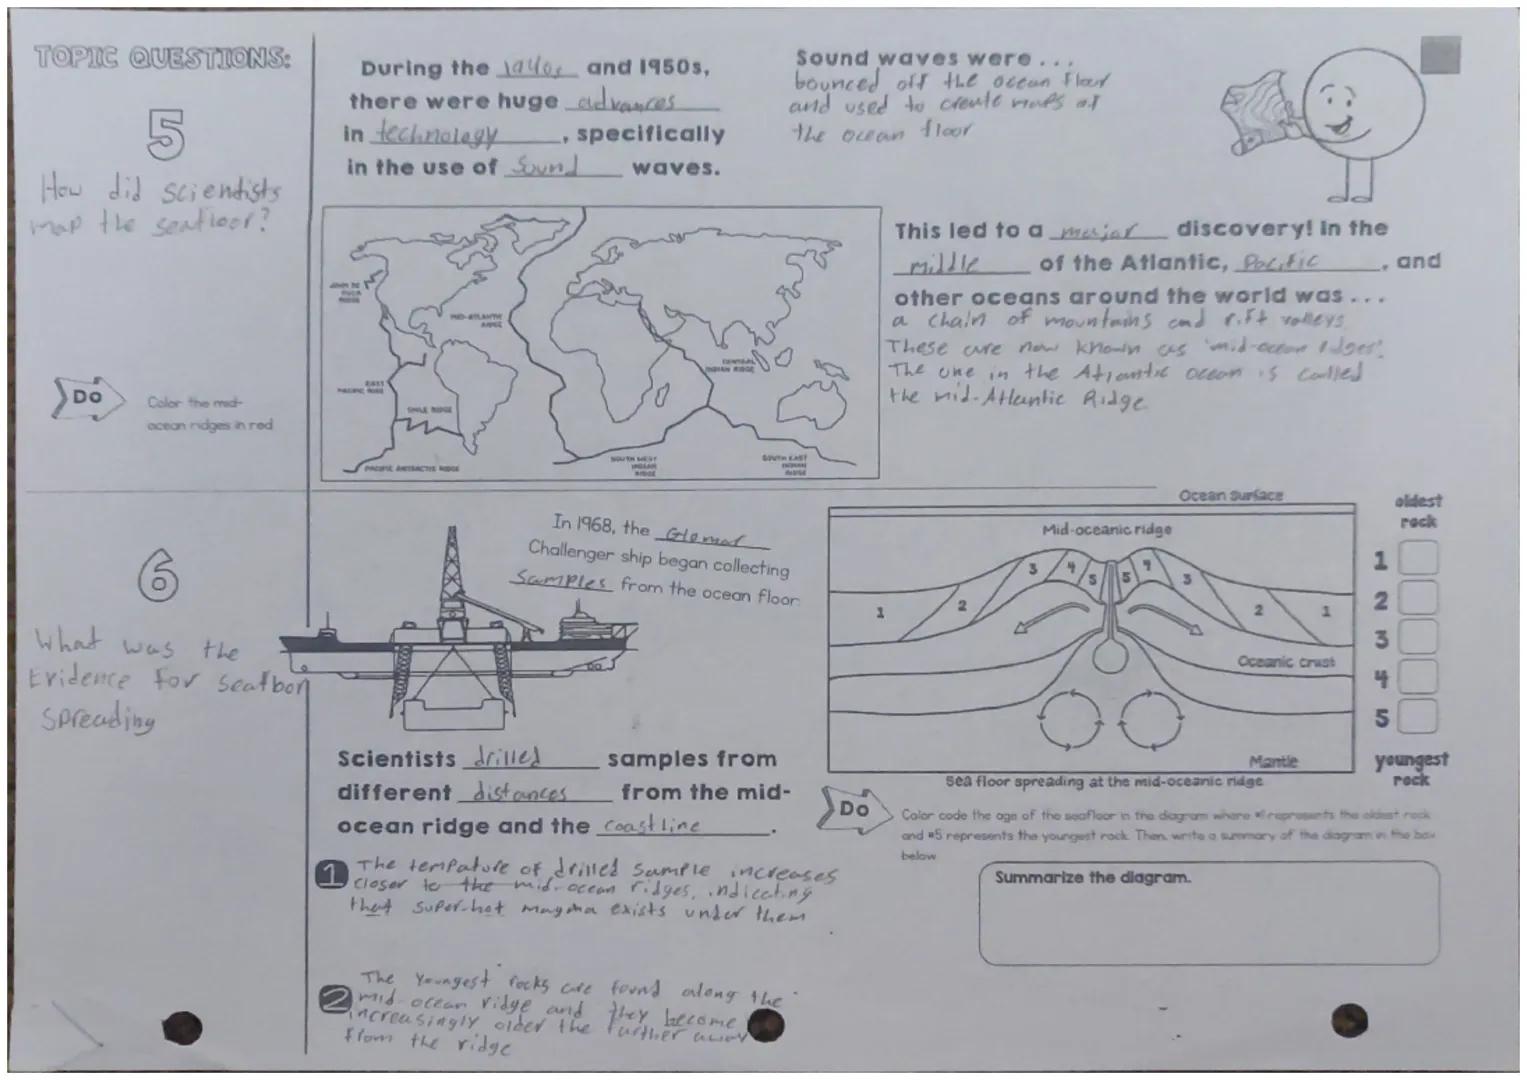 TOPIC QUESTIONS:
5
How did scientists
map the seafloor?
Do
Color the mid-
ocean ridges in red
During the 1940s and 1950s,
there were huge advances
in technology, specifically
in the use of Sound waves.
Sound waves were ...
bounced off the ocean floor
and used to create maps of
the ocean floor
JUAN DE
FUCA
RIDGE
MID-ATLANTIC
RIDGE
EAST
PACIFIC RISE
CHILE RIDGE
PACIFIC ANTARCTIC RIDGE
CENTRAL
INDIAN RIDGE
SOUTH WEST
INDIAN
RIDGE
SOUTH EAST
INDIAN
RIDGE
This led to a major discovery! In the
middle of the Atlantic, Pacific, and
other oceans around the world was ...
a chain of mountains and rift valleys
These are now known as "mid-ocean ridges".
The one in the Atlantic ocean is called
the mid-Atlantic Ridge
6
What was the
Evidence For seafloor
spreading
In 1968, the Glomar
Challenger ship began collecting
Samples from the ocean floor.
Scientists drilled samples from
different distances from the mid-
ocean ridge and the coastline.
1 The tempature of drilled sample increases
closer to the mid-ocean ridges, indicating
that super-hot magma exists under them
2 The Youngest rocks are found along the
mid-ocean ridge and they become
increasingly older the further away
from the ridge
Ocean Surface
Mid-oceanic ridge
1 2 3 4 5 5 4 3 2 1
Oceanic crust
Mantle
Sea floor spreading at the mid-oceanic ridge
oldest
rock
1
2
3
4
5
youngest
rock
Do
Color code the age of the seafloor in the diagram where #1 represents the oldest rock
and #5 represents the youngest rock. Then, write a summary of the diagram in the box
below
Summarize the diagram.